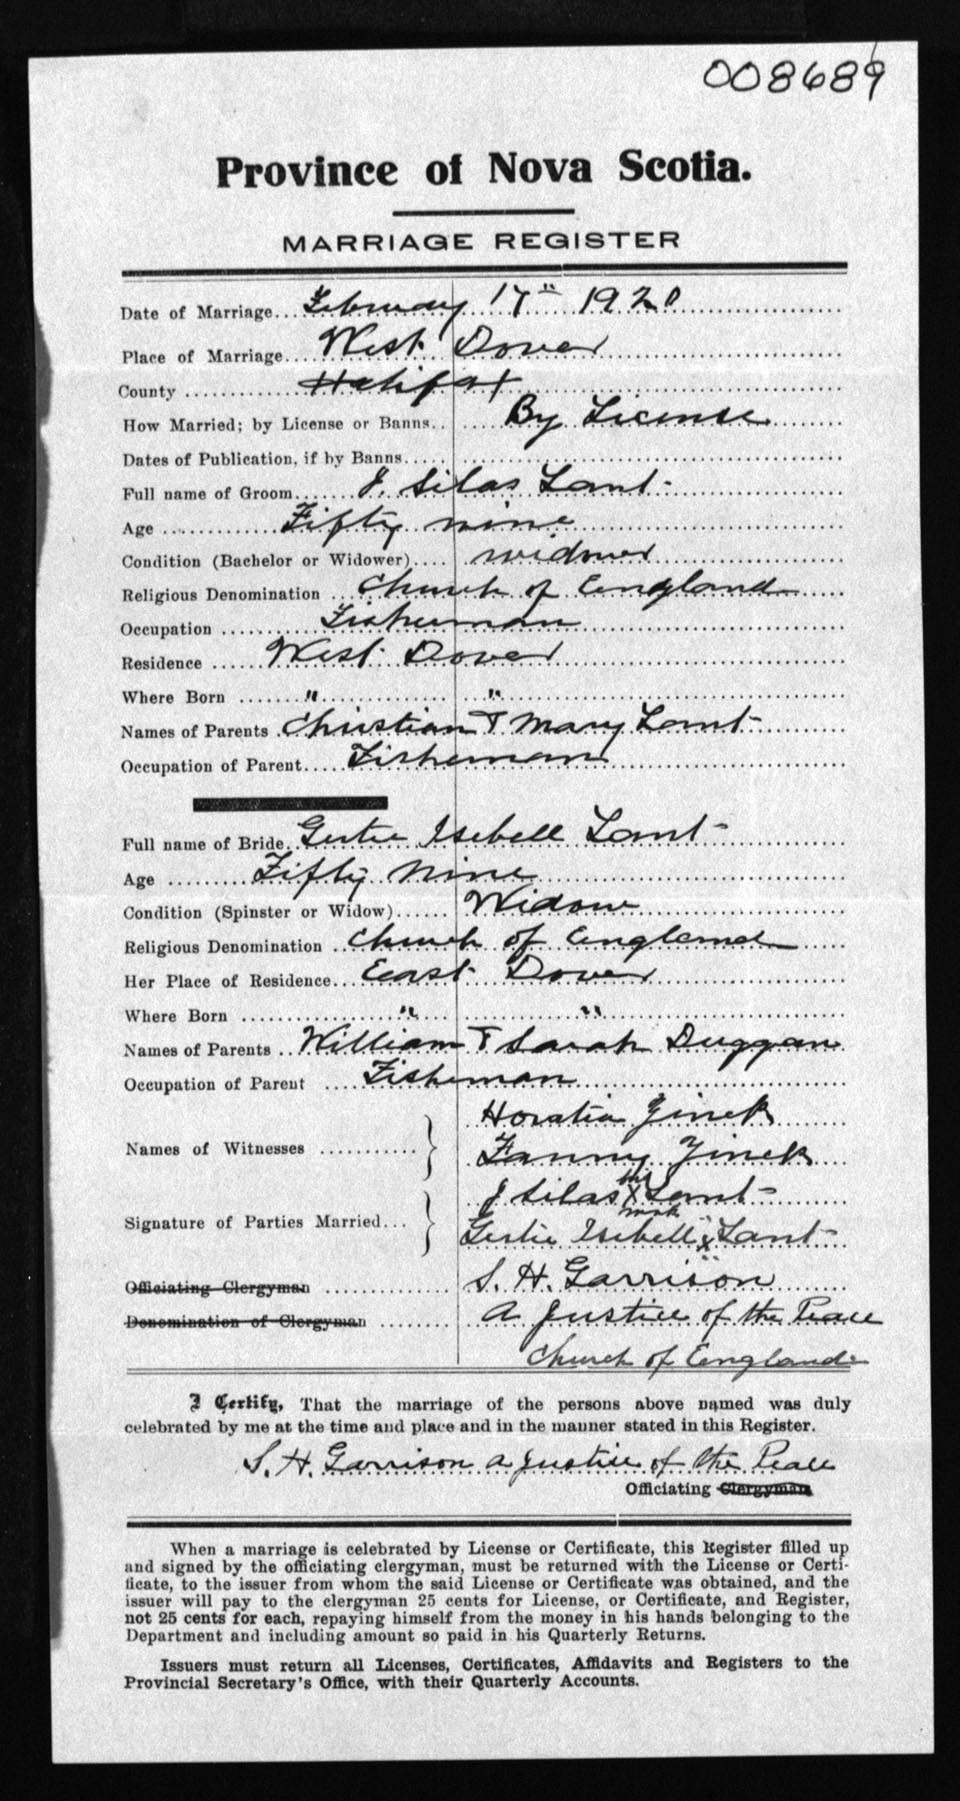 008689
Province of Nova Scotia.
MARRIAGE REGISTER
Date of Marriage... February 17th 1920
Place of Marriage... West Dover
County ... Halifax
How Married; by License or Banns.. By License
Dates of Publication, if by Banns.....
Full name of Groom... J. Silas Lant
Age ... Fifty nine
Condition (Bachelor or Widower).... widower
Religious Denomination ... Church of England
Occupation ... Fisherman
Residence ... West Dover
Where Born ... " "
Names of Parents . Christian & Mary Lant
Occupation of Parent.... Fisherman
Full name of Bride.. Gertie Isebell Lant
Age ... Fifty Nine
Condition (Spinster or Widow)...... Widow
Religious Denomination .. Church of England
Her Place of Residence... East Dover
Where Born ... " "
Names of Parents .. William & Sarah Duggan
Occupation of Parent .... Fisherman
Horatio Zinck
Names of Witnesses ...........
Fanny Zinck
J Silas his X mark Lant
Signature of Parties Married...
Gertie Isebell " X " Lant
Officiating Clergyman .............. S. H. Garrison
Denomination of Clergyman ........ A Justice of the Peace
Church of England
I Certify, That the marriage of the persons above named was duly
celebrated by me at the time and place and in the manner stated in this Register.
S. H. Garrison a Justice of the Peace
Officiating Clergyman
When a marriage is celebrated by License or Certificate, this Register filled up
and signed by the officiating clergyman, must be returned with the License or Certi-
ficate, to the issuer from whom the said License or Certificate was obtained, and the
issuer will pay to the clergyman 25 cents for License, or Certificate, and Register,
not 25 cents for each, repaying himself from the money in his hands belonging to the
Department and including amount so paid in his Quarterly Returns.
Issuers must return all Licenses, Certificates, Affidavits and Registers to the
Provincial Secretary's Office, with their Quarterly Accounts.